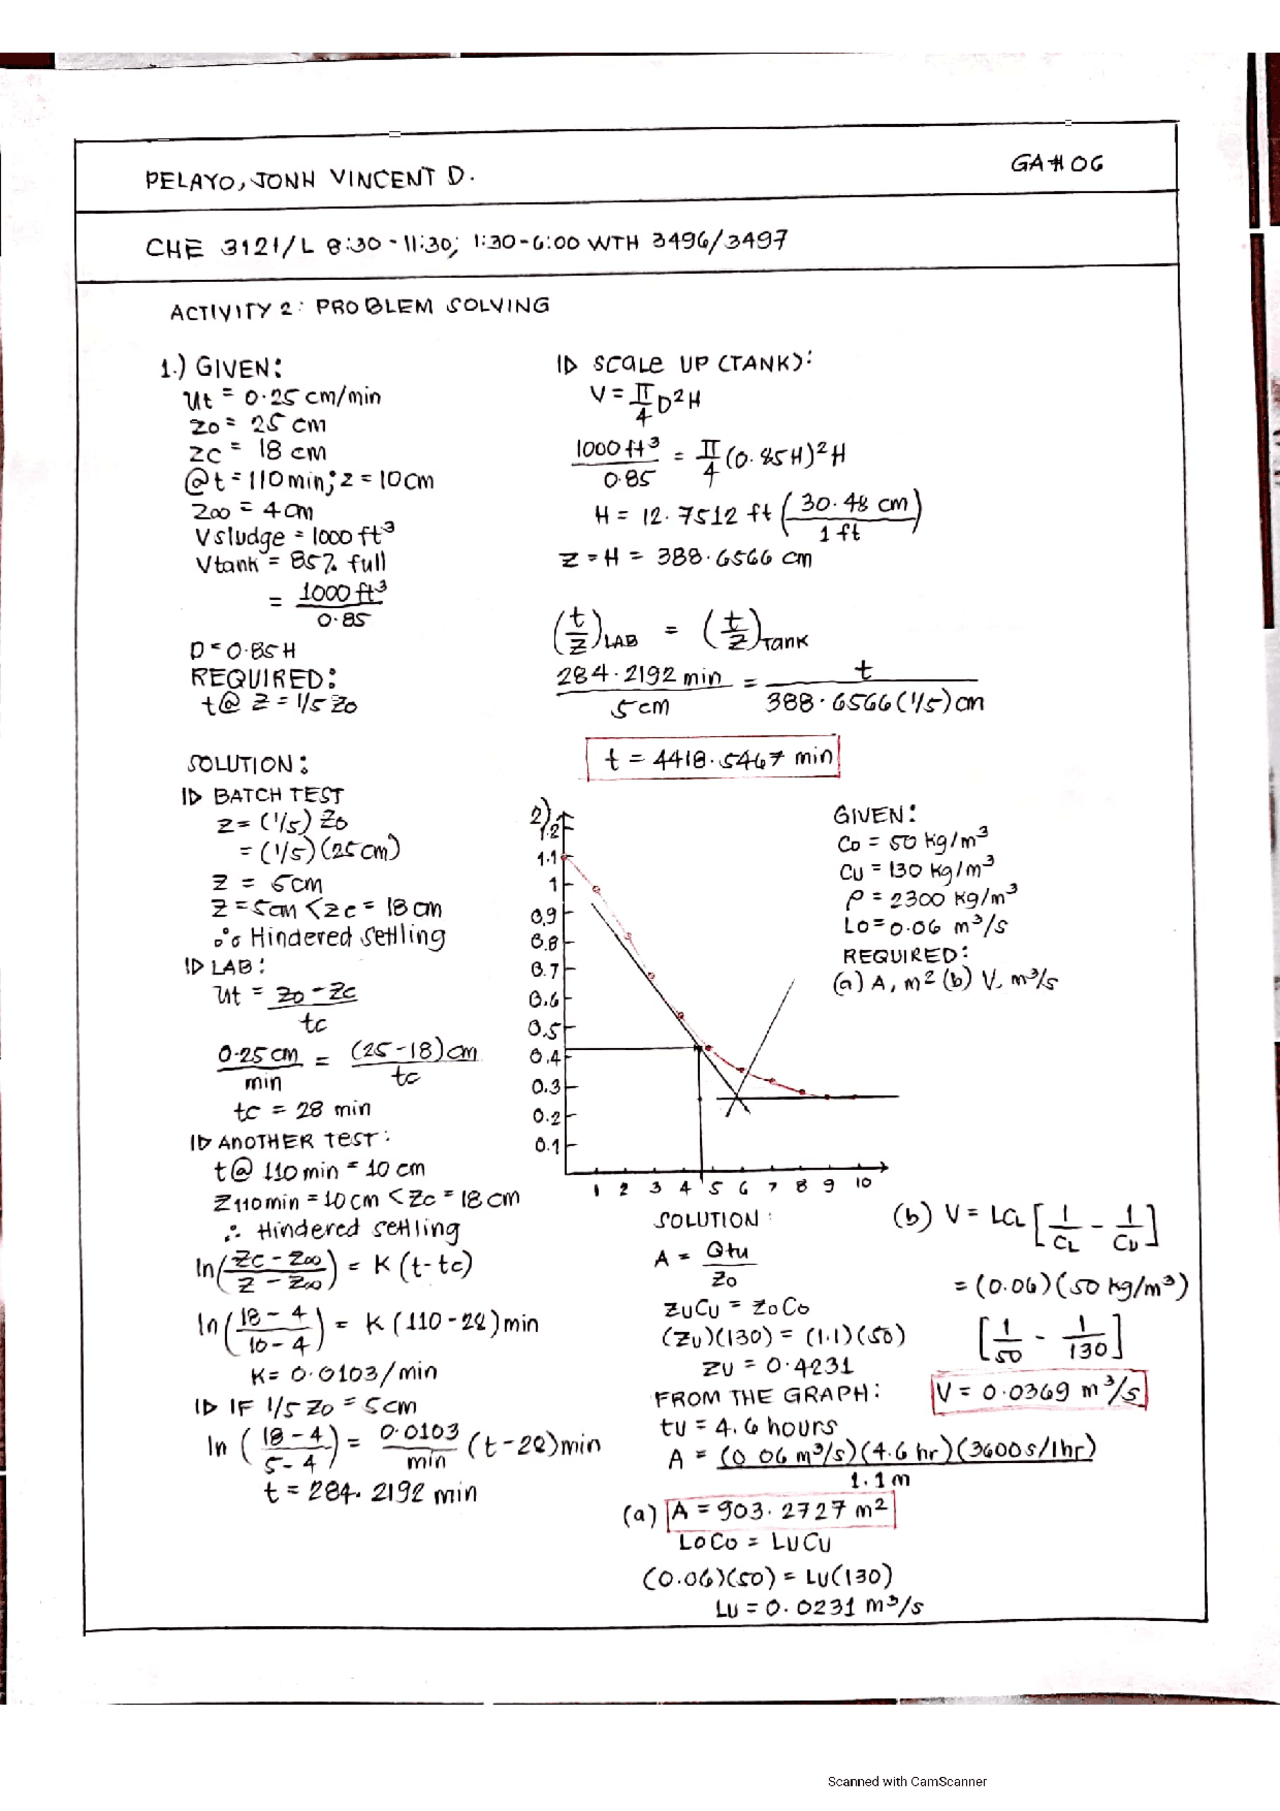 PELAYO, JONH VINCENT D.
GA# 06
CHE 3121/L 8:30-11:30; 1:30-6:00 WTH 3496/3497
ACTIVITY 2: PROBLEM SOLVING
1.) GIVEN:
Ut = 0.25 cm/min
Zo = 25 cm
Zc = 18 cm
@t = 110 min; z = 10 cm
Z∞ = 4 cm
Vsludge = 1000 ft³
Vtank = 85% full
= 1000 ft³ / 0.85
D = 0.85H
REQUIRED:
t@ Z = 1/5 Zo
SOLUTION:
BATCH TEST
Z = (1/5) Zo
= (1/5)(25 cm)
Z = 5cm
Z = 5cm < Zc = 18 cm
∴ Hindered Settling
LAB:
Ut = Zo - Zc / tc
0.25 cm / min = (25-18) cm / tc
tc = 28 min
ANOTHER TEST:
t@ 110 min = 10 cm
Z110min = 10 cm < Zc = 18 cm
∴ Hindered settling
ln(Zc - Z∞ / Z - Z∞) = K (t - tc)
ln(18 - 4 / 10 - 4) = K (110-28) min
K = 0.0103/min
IF 1/5 Zo = 5cm
ln (18-4 / 5-4) = 0.0103 / min (t-28) min
t = 284.2192 min
SCALE UP (TANK):
V = π/4 D²H
1000 ft³ / 0.85 = π/4 (0.85H)² H
H = 12.7512 ft (30.48 cm / 1 ft)
Z = H = 388.6566 cm
(t/Z)LAB = (t/Z)Tank
284.2192 min / 5 cm = t / 388.6566 (1/5) cm
t = 4418.5467 min
2)
1.2
1.1
1
0.9
0.8
0.7
0.6
0.5
0.4
0.3
0.2
0.1
1 2 3 4 5 6 7 8 9 10
GIVEN:
Co = 50 kg/m³
Cu = 130 kg/m³
ρ = 2300 kg/m³
Lo = 0.06 m³/s
REQUIRED:
(a) A, m² (b) V, m³/s
SOLUTION:
A = Qtu / Zo
ZuCu = ZoCo
(Zu)(130) = (1.1)(50)
Zu = 0.4231
FROM THE GRAPH:
tu = 4.6 hours
A = (0.06 m³/s)(4.6 hr)(3600s/1hr) / 1.1 m
(a) A = 903.2727 m²
LoCo = LuCu
(0.06)(50) = Lu(130)
Lu = 0.0231 m³/s
(b) V = LCL [1/CL - 1/Cu]
= (0.06)(50 kg/m³)
[1/50 - 1/130]
V = 0.0369 m³/s
Scanned with CamScanner